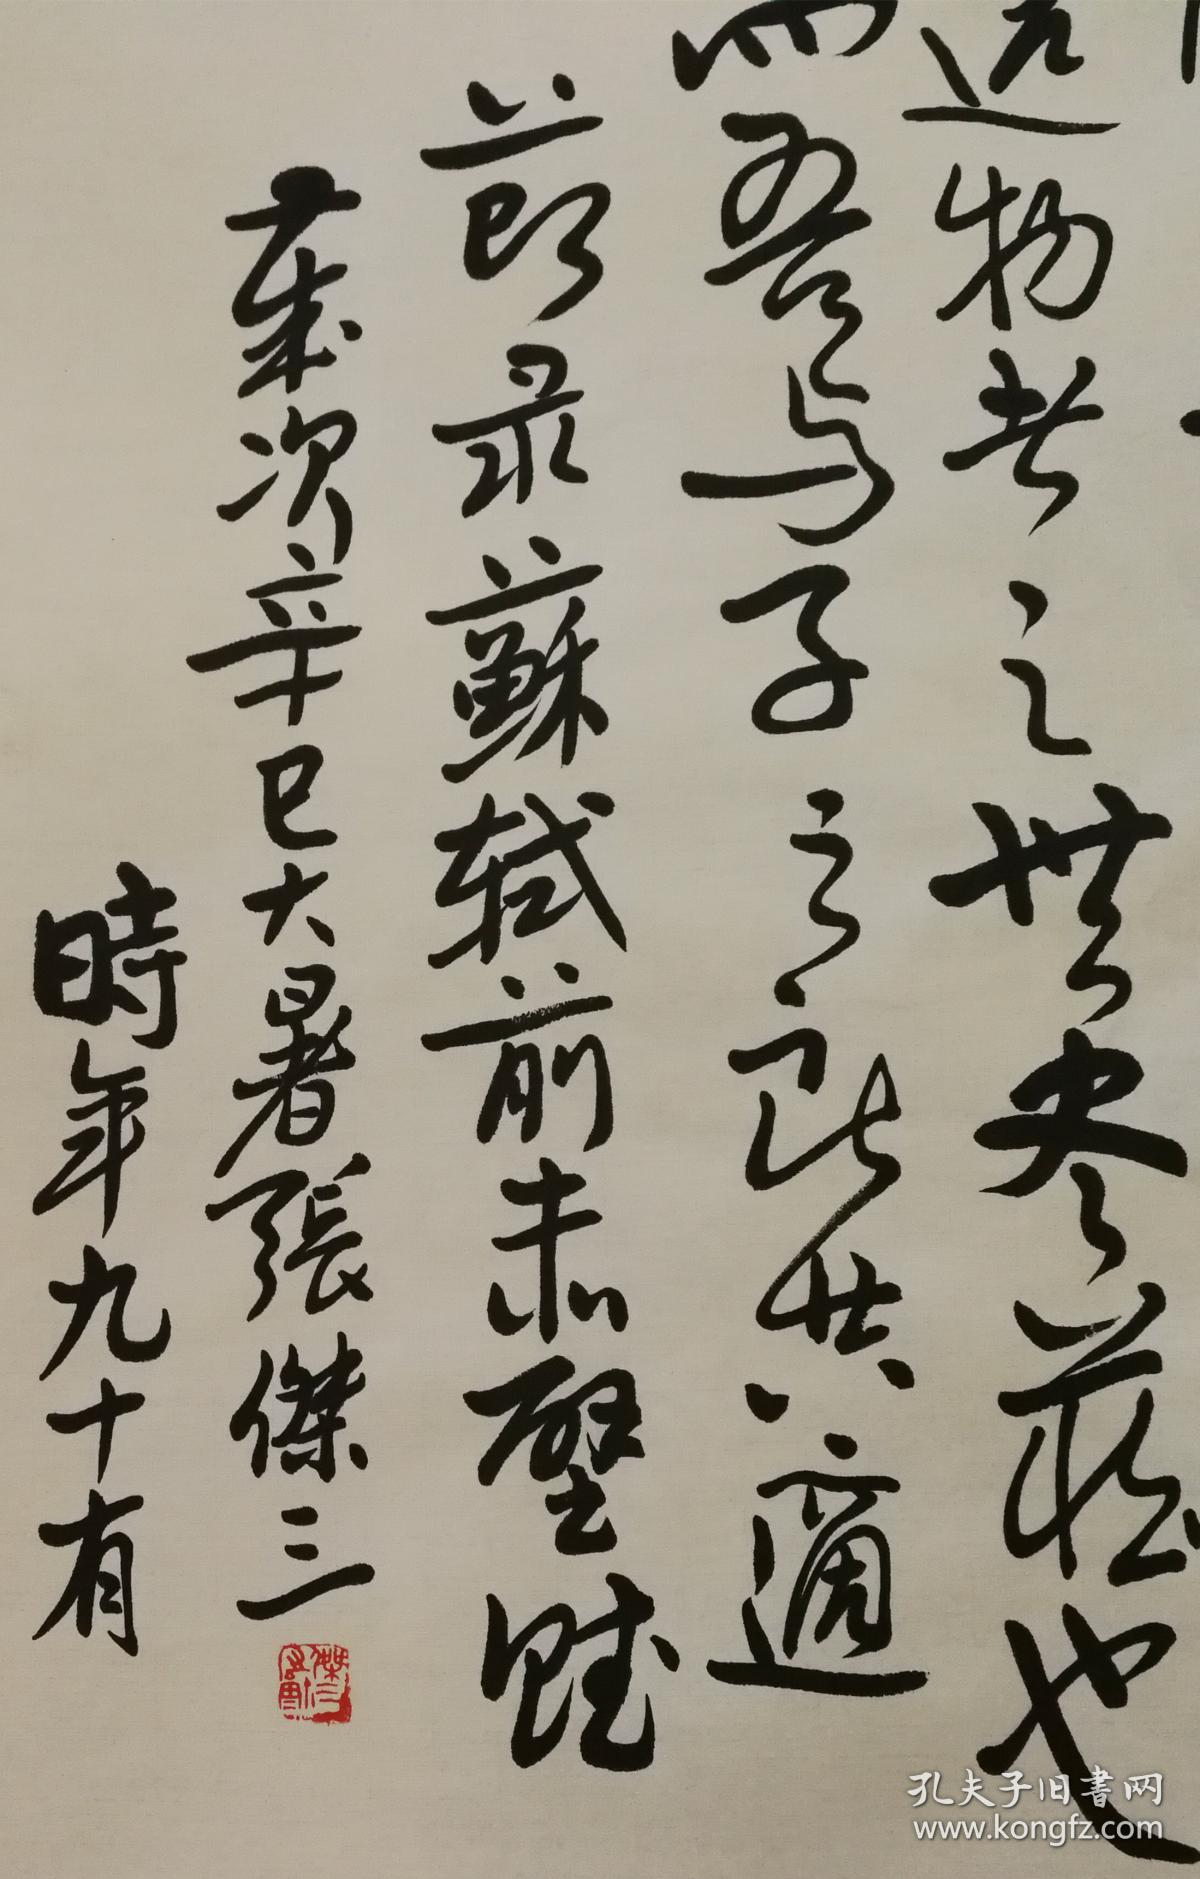 造物者之無尽藏也
而吾与子之所共適
節录蘇軾前赤壁賦
歲次辛巳大暑張傑三
時年九十有
孔夫子旧書网
www.kongfz.com